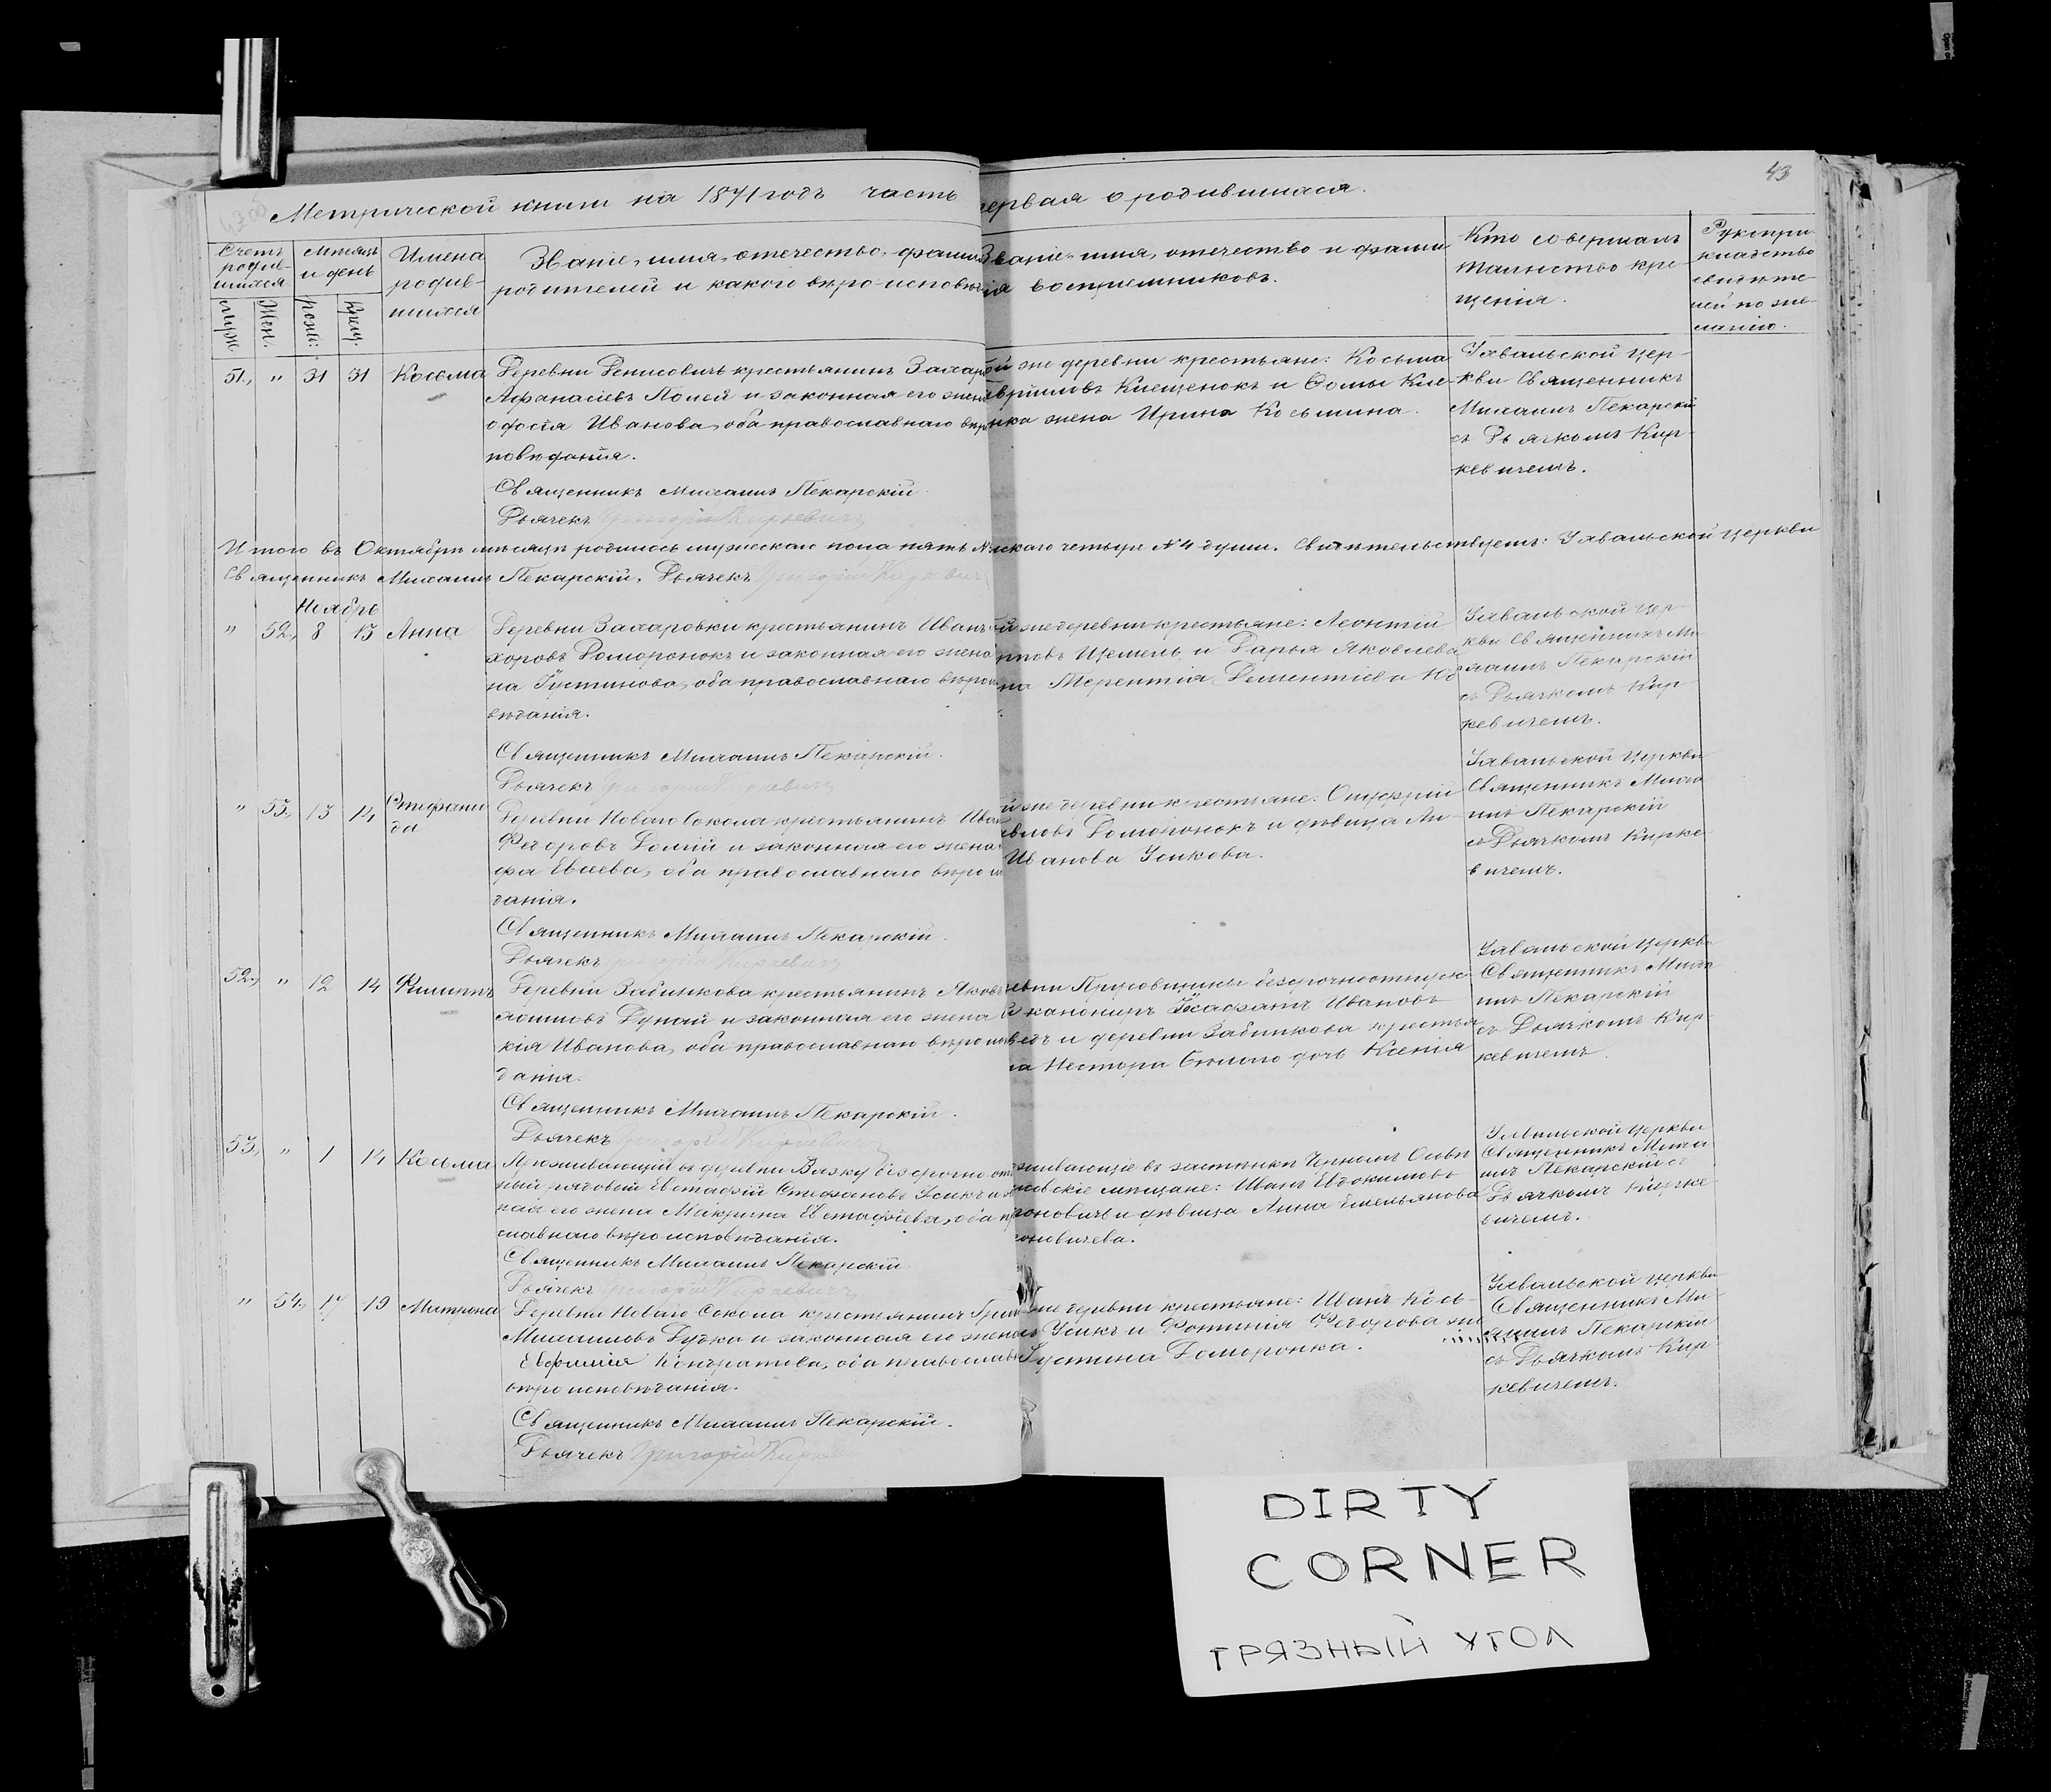 43
Метрической книги на 1871 годъ часть первая о родившихся.
Счетъ родив-шихся
Мѣсяцъ и день
Имена родив-шихся
Званіе, имя, отечество, фамилія
родителей и какого вѣроисповѣ
Званіе, имя, отечество и фами
лія воспріемниковъ.
Кто совершалъ
таинство кре-
щенія.
Рукопри
кладство
свидѣте
лей по же-
ланію.
муж.
Жен.
рожд:
Крещ.
51, " 31 31 Косма
Деревни Денисовичъ крестьянинъ Захар
Афанасіевъ Полей и законная его жена
Ивановна, оба православнаго вѣр
повѣданія.
Священникъ Михаилъ Пекарскій
Дьячекъ Григорій Киркевичъ
ой же деревни крестьяне: Косьма
Клещенокъ и Ѳомы Кле
нка жена Ирина Косьмина.
Цер-
кви Священникъ
Михаилъ Пекарскій
съ Дьячкомъ Кир-
кевичемъ.
Итого въ Октябрѣ мѣсяцѣ родилось мужескаго пола пять женскаго четыре №4 души. Свидѣтельствуемъ: церкви
Священникъ Михаилъ Пекарскій, Дьячекъ Григорій Киркевичъ
Ноябрь
" 52, 8 15 Анна
Деревни Захаровки крестьянинъ Иванъ
хоровъ Доморонокъ и законная его жена
на Густинова, оба православнаго вѣро
вѣданія.
Священникъ Михаилъ Пекарскій.
Дьячекъ Григорій Киркевичъ
й же деревни крестьяне: Леонтій
повъ Щемель и Дарья Яковлева
на Терентія Дементіева
Цер-
кви Священникъ Ми
хаилъ Пекарскій
съ Дьячкомъ Кир
кевичемъ.
" 53, 13 14 Стефани
да
Деревни Новаго Сокола крестьянинъ Иван
Ѳедоровъ и законная его жена
фа Евсева, оба православнаго вѣро
данія.
Священникъ Михаилъ Пекарскій.
Дьячекъ Григорій Киркевичъ
й же деревни крестьяне: Онуфрій
вловъ Доморонокъ и дѣвица Ан
Иванова Усикова.
Церкви
Священникъ Миха
илъ Пекарскій
съ Дьячкомъ Кирке
вичемъ.
52, " 12 14 Филиппъ
Деревни Забинкова крестьянинъ Яковъ
Дунай и законная его жена
кія Иванова, оба православнаго вѣро
данія.
Священникъ Михаилъ Пекарскій.
Дьячекъ Григорій Киркевичъ
ревни Прусовщины безсрочноотпуск
й канониръ Ивановъ
и деревни Забинкова крестья
на Нестора дочь Ксенія
Церкви
Священникъ Миха
илъ Пекарскій
съ Дьячкомъ Кир
кевичемъ.
53, " 1 14 Косма
Проживающій въ деревни Вязку безсрочно от
ный рядовой Евстафій Стефановъ Усикъ и з
ная его жена Макрина Евстафіева, оба п
славнаго вѣроисповѣданія.
Священникъ Михаилъ Пекарскій
Дьячекъ Григорій Киркевичъ
живающіе въ застѣнки Черномъ
мѣщане: Иванъ Евдокимовъ
оновичъ и дѣвица Анна Емельянова
оновичева.
церкви
Священникъ Миха
илъ Пекарскій съ
Дьячкомъ Кирке
вичемъ.
" 54, 17 19 Матрона
Деревни Новаго Сокола крестьянинъ Гри
Михаиловъ Дудка и законная его жена
Евфимія Кондратова, оба православ
вѣроисповѣданія.
Священникъ Михаилъ Пекарскій.
Дьячекъ Григорій Кирке
же деревни крестьяне: Иванъ Кось-
Усикъ и Фотинія Ѳедорова же
Густина Доморонка.
церкви
Священникъ Ми-
хаилъ Пекарскій
съ Дьячкомъ Кир
кевичемъ.
DIRTY
CORNER
ГРЯЗНЫЙ УГОЛ